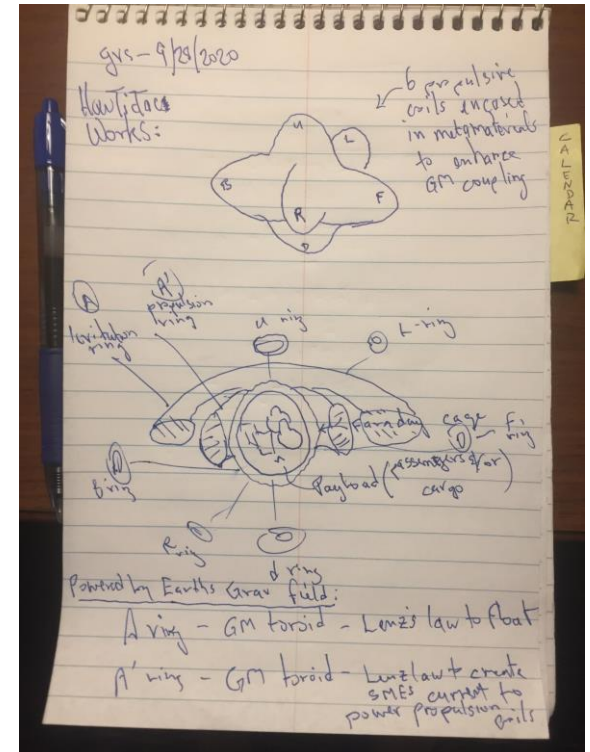 grs - 9/28/2020
How TicTac
Works:
6 propulsive
coils encased
in metamaterials
to enhance
GM coupling
U
L
B
F
R
D
CALENDAR
A
levitation
ring
A'
propulsion
ring
U ring
L-ring
Faraday cage
F-ring
B ring
Payload (passengers &/or
cargo
R ring
d ring
Powered by Earths Grav field:
A ring - GM toroid - Lenz's law to float
A' ring - GM toroid - Lenz law to create
SMES current to
power propulsion coils